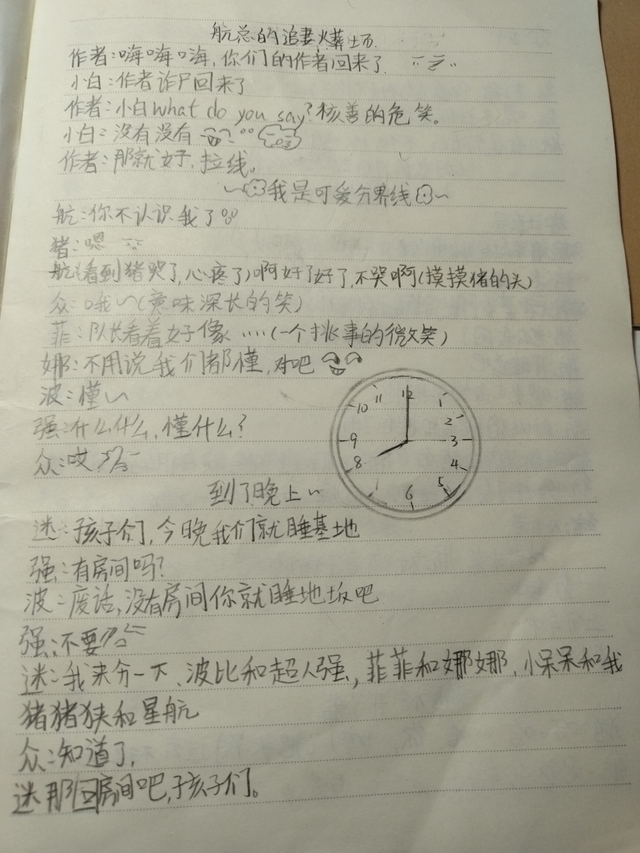 航总的追妻火葬场
作者:嗨嗨嗨,你们的作者回来了
小白:作者诈尸回来了
作者:小白what do you say?核善的危笑。
小白:没有没有
作者:那就好,拉线。
~我是可爱分界线~
航:你不认识我了
猪:嗯
航(看到猪哭了,心疼了)啊好了好了,不哭啊(摸摸猪的头)
众:哦~(意味深长的笑)
菲:队长看着好像……(一个挑事的微笑)
娜:不用说我们都懂,对吧
波:懂~
强:什么什么,懂什么?
众:哎
12 1 2 3 4 5 6 7 8 9 10 11
到了晚上~
迷:孩子们,今晚我们就睡基地
强:有房间吗?
波:废话,没有房间你就睡地坂吧
强:不要
迷:我来分一下、波比和超人强,菲菲和娜娜,小呆呆和我
猪猪侠和星航
众:知道了,
迷 那回房间吧,孩子们。